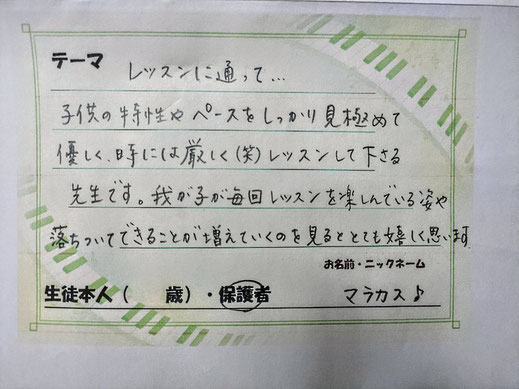 テーマ
レッスンに通って…
子供の特性やペースをしっかり見極めて
優しく、時には厳しく(笑)レッスンして下さる
先生です。我が子が毎回レッスンを楽しんでいる姿や
落ちついてできることが増えていくのを見るととても嬉しく思います
お名前・ニックネーム
生徒本人( 歳)・保護者 マラカス♪